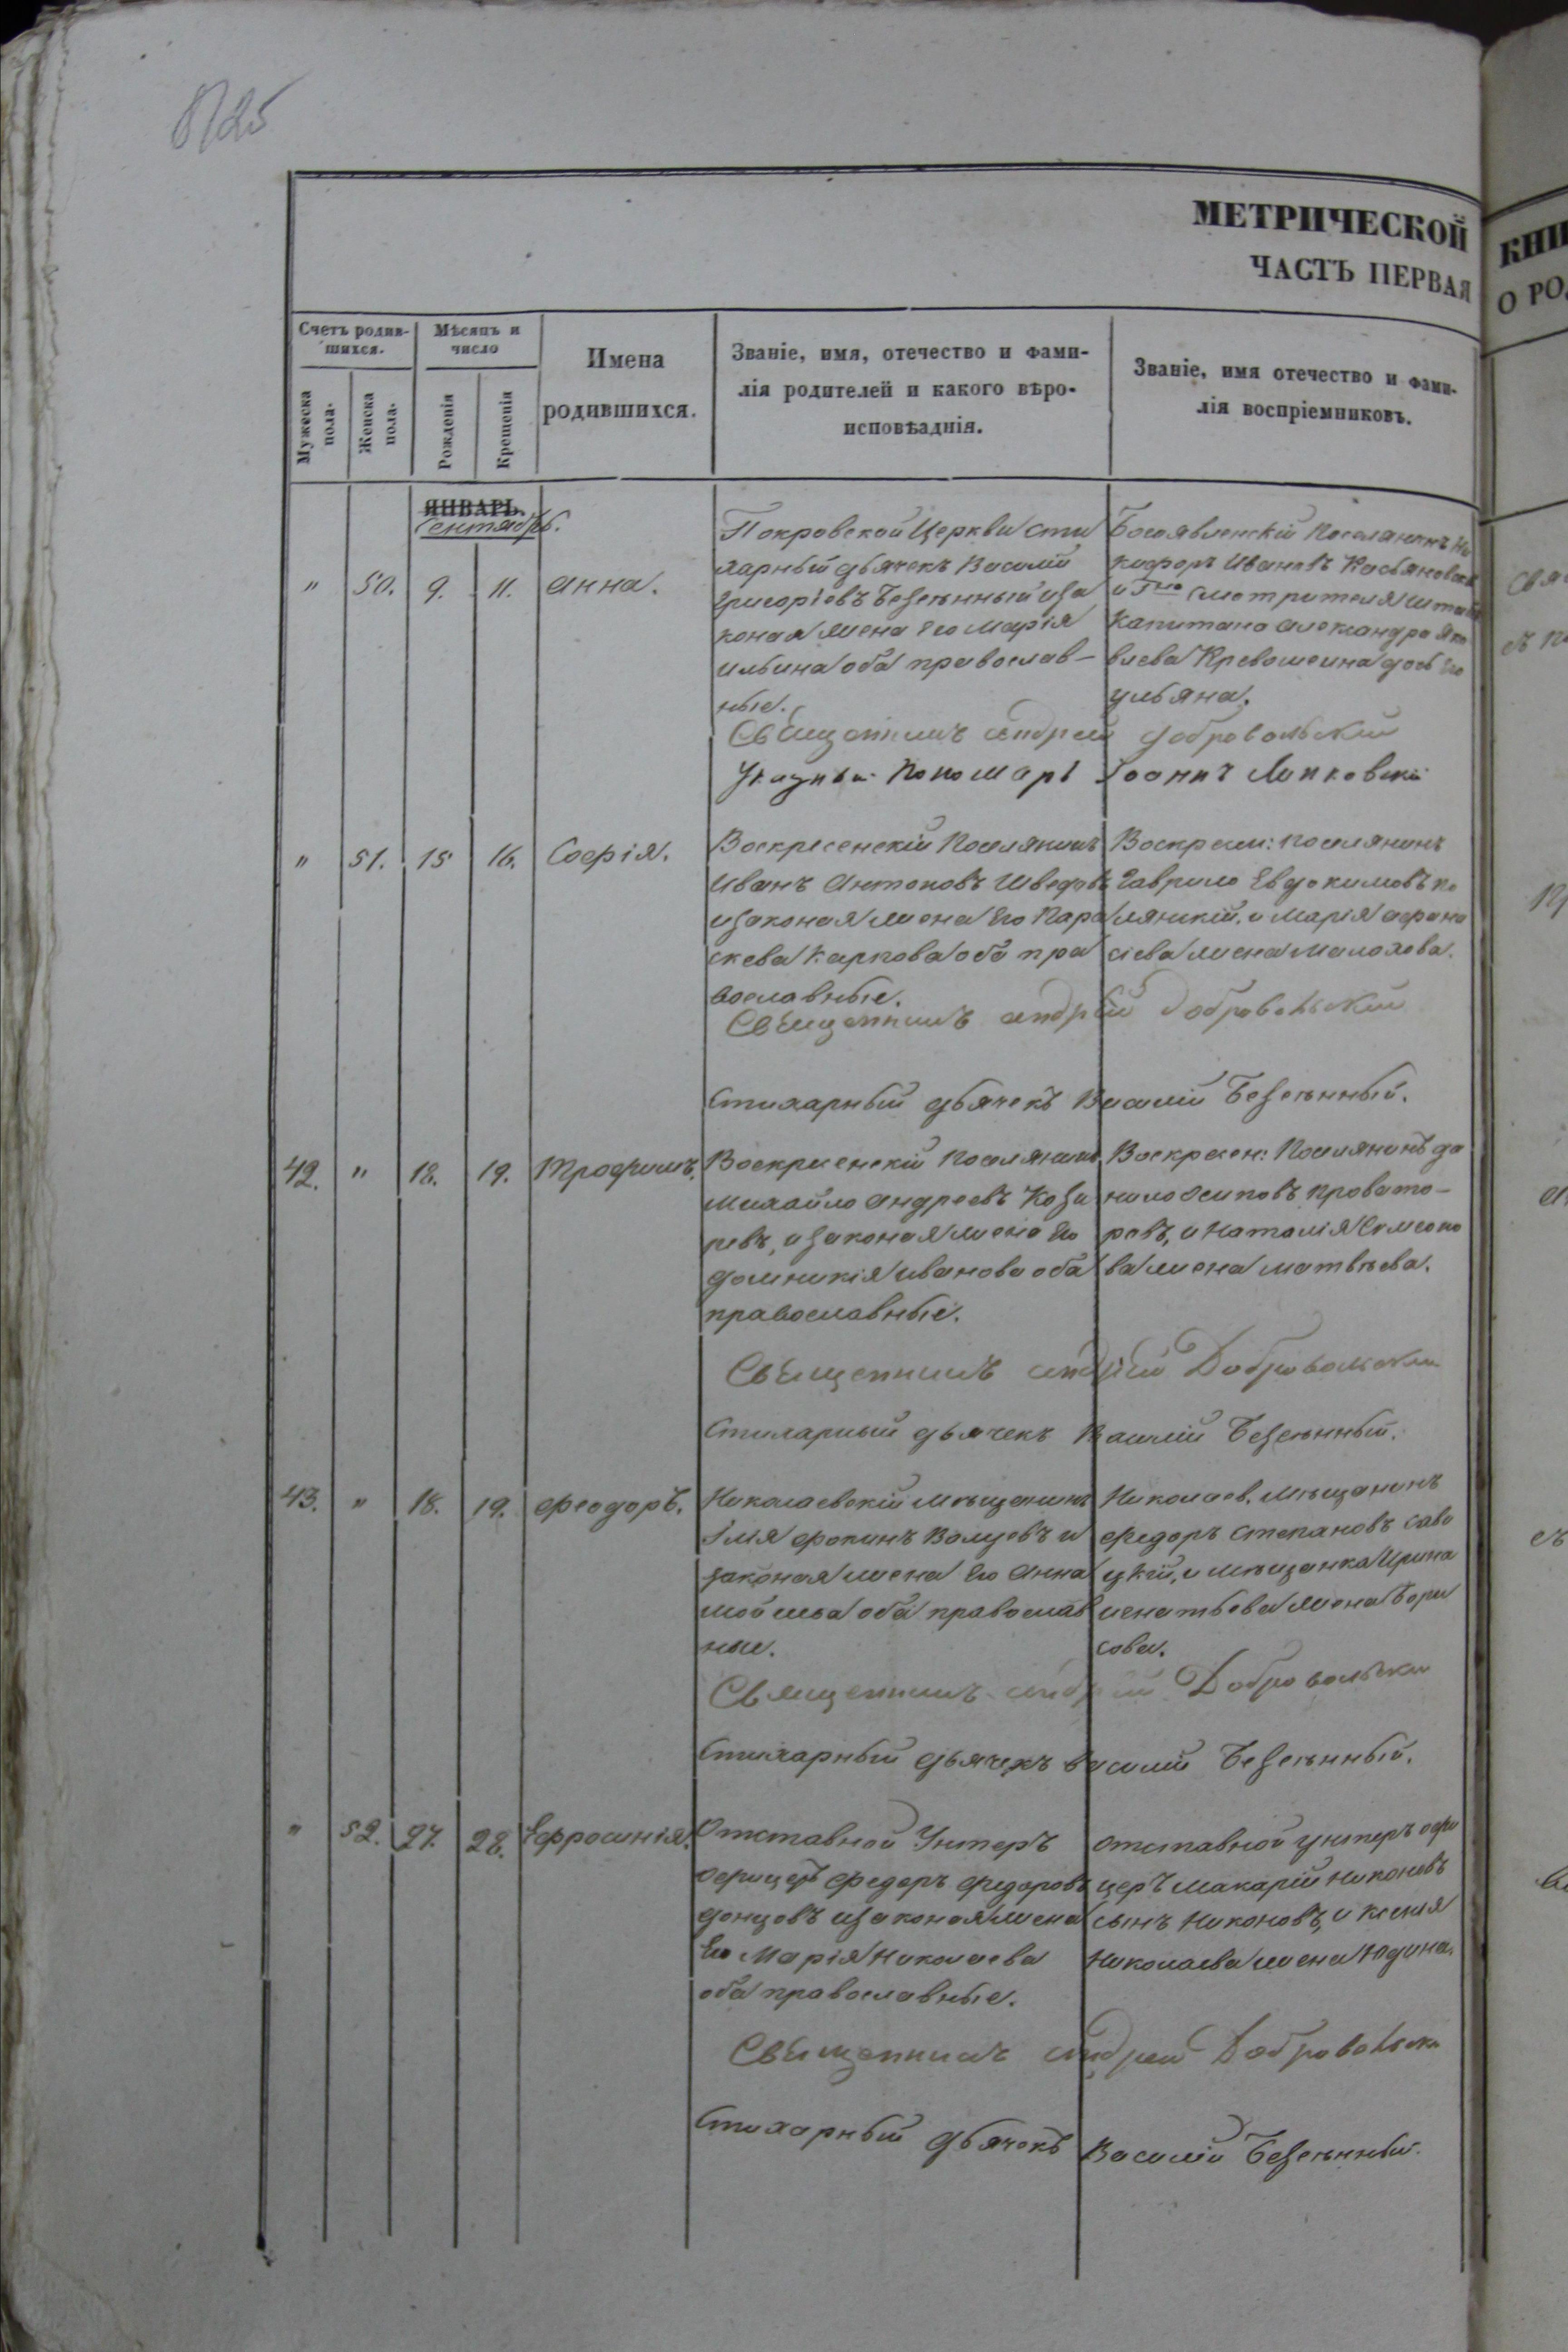 МЕТРИЧЕСКОЙ
ЧАСТЬ ПЕРВАЯ
КНИ
О РО
Счетъ родив-
шихся.
Мѣсяцъ и
число
Имена
родившихся.
Званіе, имя, отечество и фами-
лія родителей и какого вѣро-
исповѣаднія.
Званіе, имя отечество и фами-
лія воспріемниковъ.
Мужеска
пола.
Женска
пола.
Рожденія
Крещенія
ЯНВАРЬ.
Сентябрь.
" 50. 9. 11. Анна.
Покровской Церкви сти
харный дьячекъ Василій
Григоріевъ Безсѣнный иза
коная жена Его Марія
Ильина оба православ-
ные.
Богоявленскій Поселянинъ Ни
кифоръ Ивановъ Касьяновскій
и смотрителя штабсъ
Капитана Александра Яко
влева Кревошеина дочь Его
Ульяна.
Священникъ Андрей Добровольскій
Указный Пономарь Іоаннъ Липковскій
" 51. 15 16. Софія.
Воскресенскій Поселянинъ
Иванъ Антоновъ Шведовъ
изаконая жена Его Пара
скева Карпова оба пра
вославные.
Воскресен: поселянинъ
Гаврило Евдокимовъ По
лянскій, и Марія Афана
сіева жена Малохова.
Священникъ Андрей Добровольскій
Стихарный дьячекъ Василій Безсѣнный.
42. " 18. 19. Трофимъ.
Воскресенскій Поселянинъ
Михайло Андреевъ Козы
ревъ, изаконая жена Его
Домникія Иванова оба
православные.
Воскресен: Поселянинъ Да
нило Осиповъ Провото-
ровъ, и Наталія Симеоно
ва жена Матвѣева.
Священникъ Андрей Добровольскій
Стихарный дьячекъ Василій Безсѣнный.
43. " 18. 19. Феодоръ.
Николаевскій мѣщанинъ
Ілія Фокинъ Волцовъ и
законая жена Его Анна
оба православ
ные.
Николаев. мѣщанинъ
Федоръ Степановъ Саво
цкій, и мѣщанка Ирина
Игнатьева жена Бори
сова.
Священникъ Андрей Добровольскій
Стихарный дьячекъ Василій Безсѣнный.
" 52. 27. 28. Ефросинія.
Отставной Унтеръ
офицеръ Федоръ Федоровъ
Донцовъ изаконая жена
Его Марія Николаева
оба православные.
Отставной унтеръ офи
церъ Макарій Никоновъ
сынъ Никоновъ, и Ксенія
Николаева жена Юдина.
Священникъ Андрей Добровольскій
Стихарный дьячекъ Василій Безсѣнный.